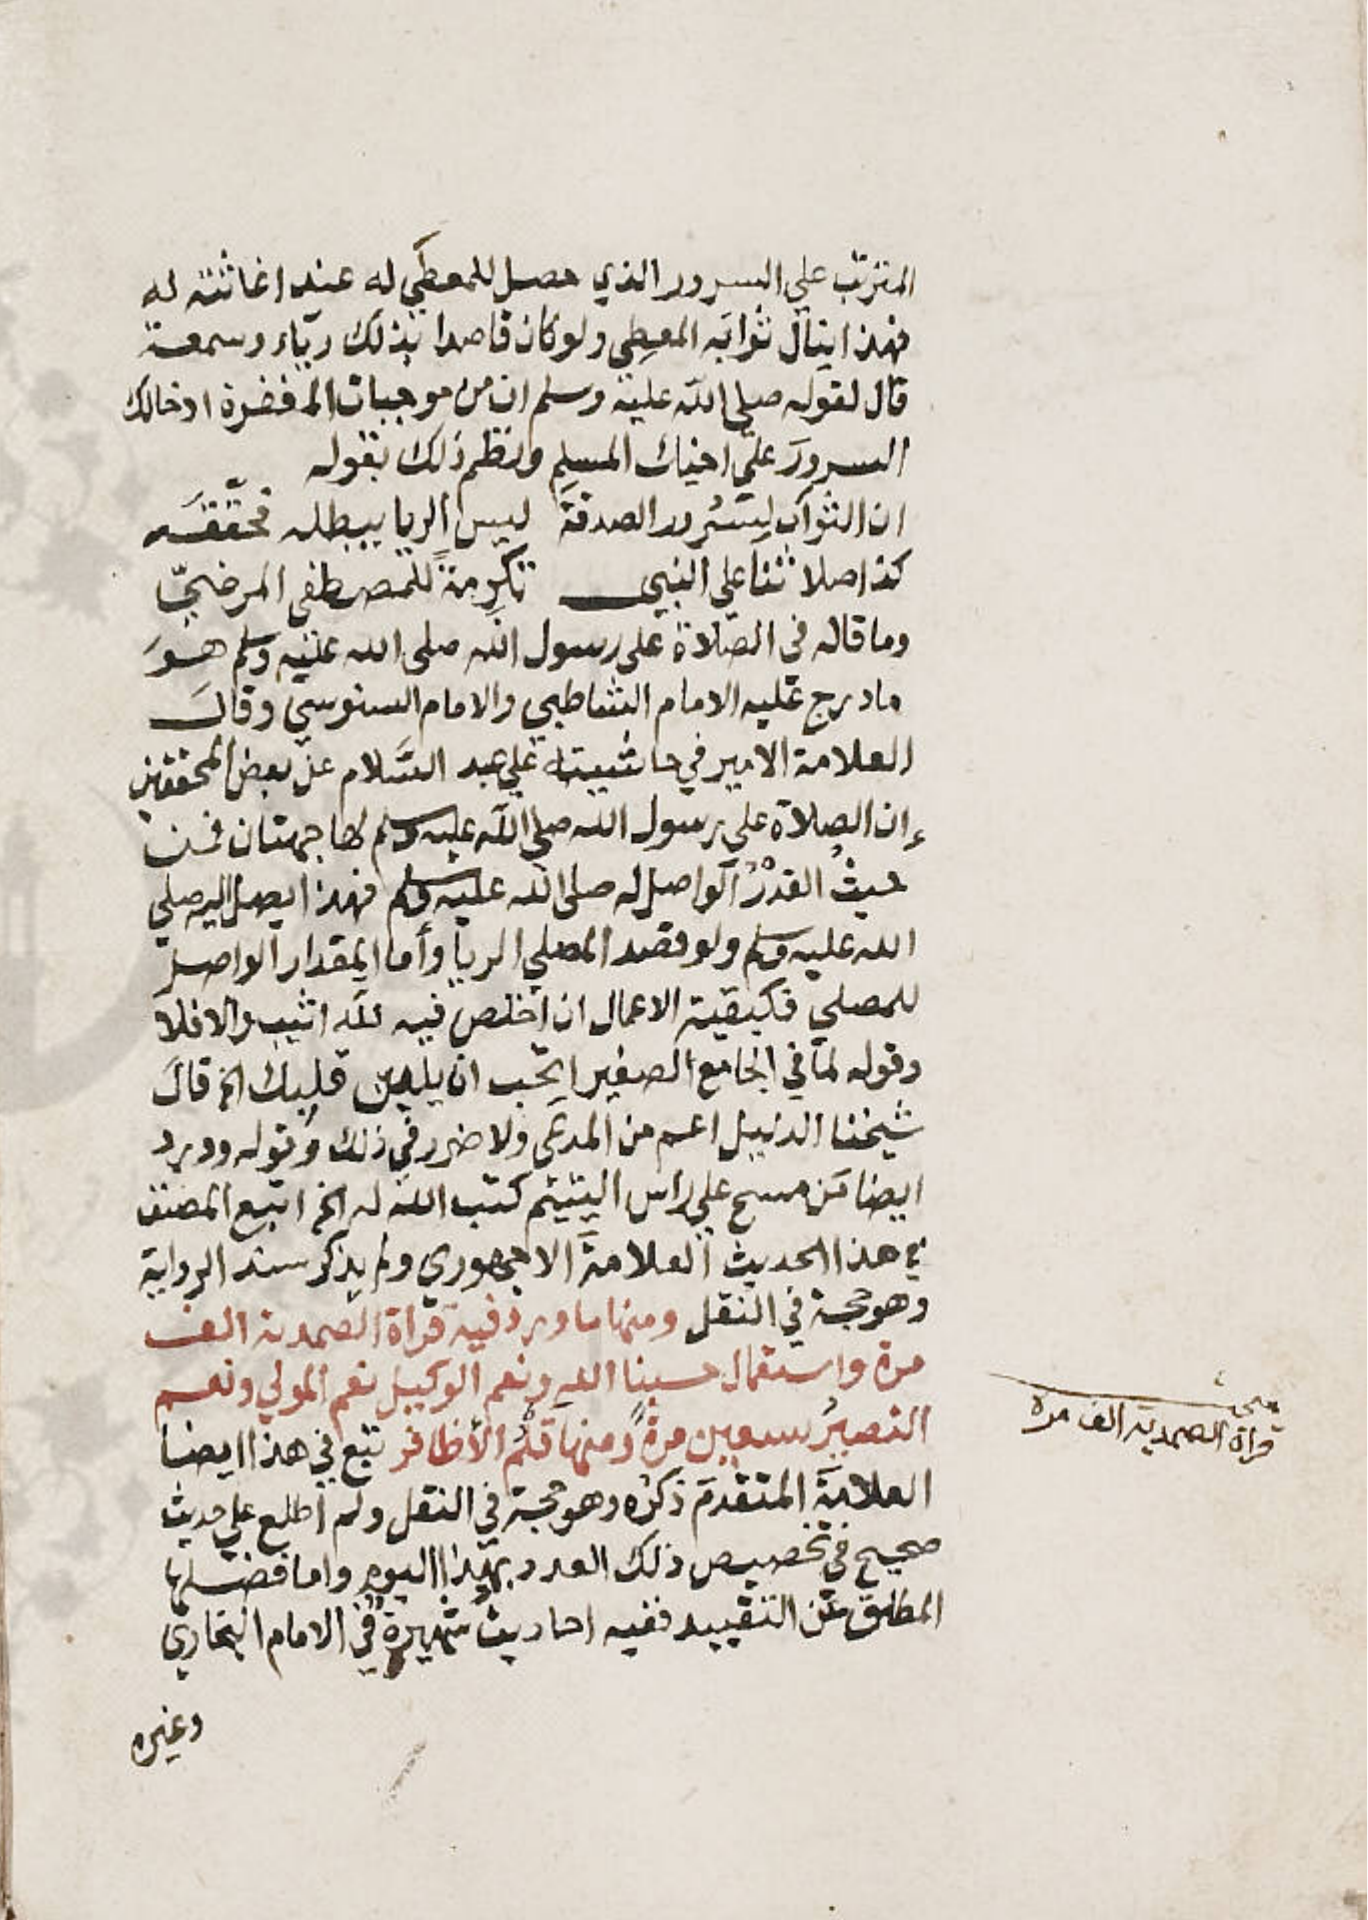 المترتب علي السرور الذي حصل للمعطي له عند اغاثته له
فهذا ينال ثوابه المعطي ولو كان قاصدا بذلك رياء وسمعة
قال لقوله صلى الله عليه وسلم ان من موجبات المغفرة ادخالك
السرورَ على اخيك المسلم ونظم ذلك بقوله
ان الثواب لِسُرور الصدقة ليس الريا يبطله فحققَه
كذا صلاتنا علي النبي تكرِمةً للمصطفى المرضيّ
وما قاله في الصّلاة على رسول الله صلى الله عليه وسلم هوَ
ما درج عليه الامام الشاطبي والامام السنوسي وقالَ
العلامة الامير في حاشيته علي عبد السَّلام عن بعض المحققين
إن الصلاة علي رسول الله صلي الله عليه وسلم لها جهتان فمن
حيثُ القدْرُ الواصل له صلى الله عليه وسلم فهذا يصل اليه صلي
الله عليه وسلم ولو قصد المصلي الريا وأما المقدار الواصل
للمصلي فكبقية الاعمال ان اخلص فيه لله اثيب والا فلا
وقوله لما في الجامع الصغير اتحب ان يلين قلبك الخ قالَ
شيخنا الدليل اعم من المدعي ولا ضرر في ذلك وقوله وورد
ايضا مَن مسح علي راس اليتيم كتب الله له الخ اتبع المصنف
في هذا الحديث العلامةَ الاجهوري ولم يذكر سند الرواية
وهو حجة في النقل ومنها ما ورد فيه قراة الصمدية الف
مرة واستعمال حسبنا الله ونعم الوكيل نعم المولي ونعم
النصيرُ سبعين مرةً ومنها قلمُ الأظافر تبع في هذا ايضا
العلامةَ المتقدمَ ذكرُه وهو حجة في النقل ولم أطلع على حديث
صحيح في تخصيص ذلك العدد بهذا اليوم واما فضلها
المطلق عن التقييد ففيه احاديثُ شهيرة في الامام البخاري
وغيره
قراة الصمدية الف مرة